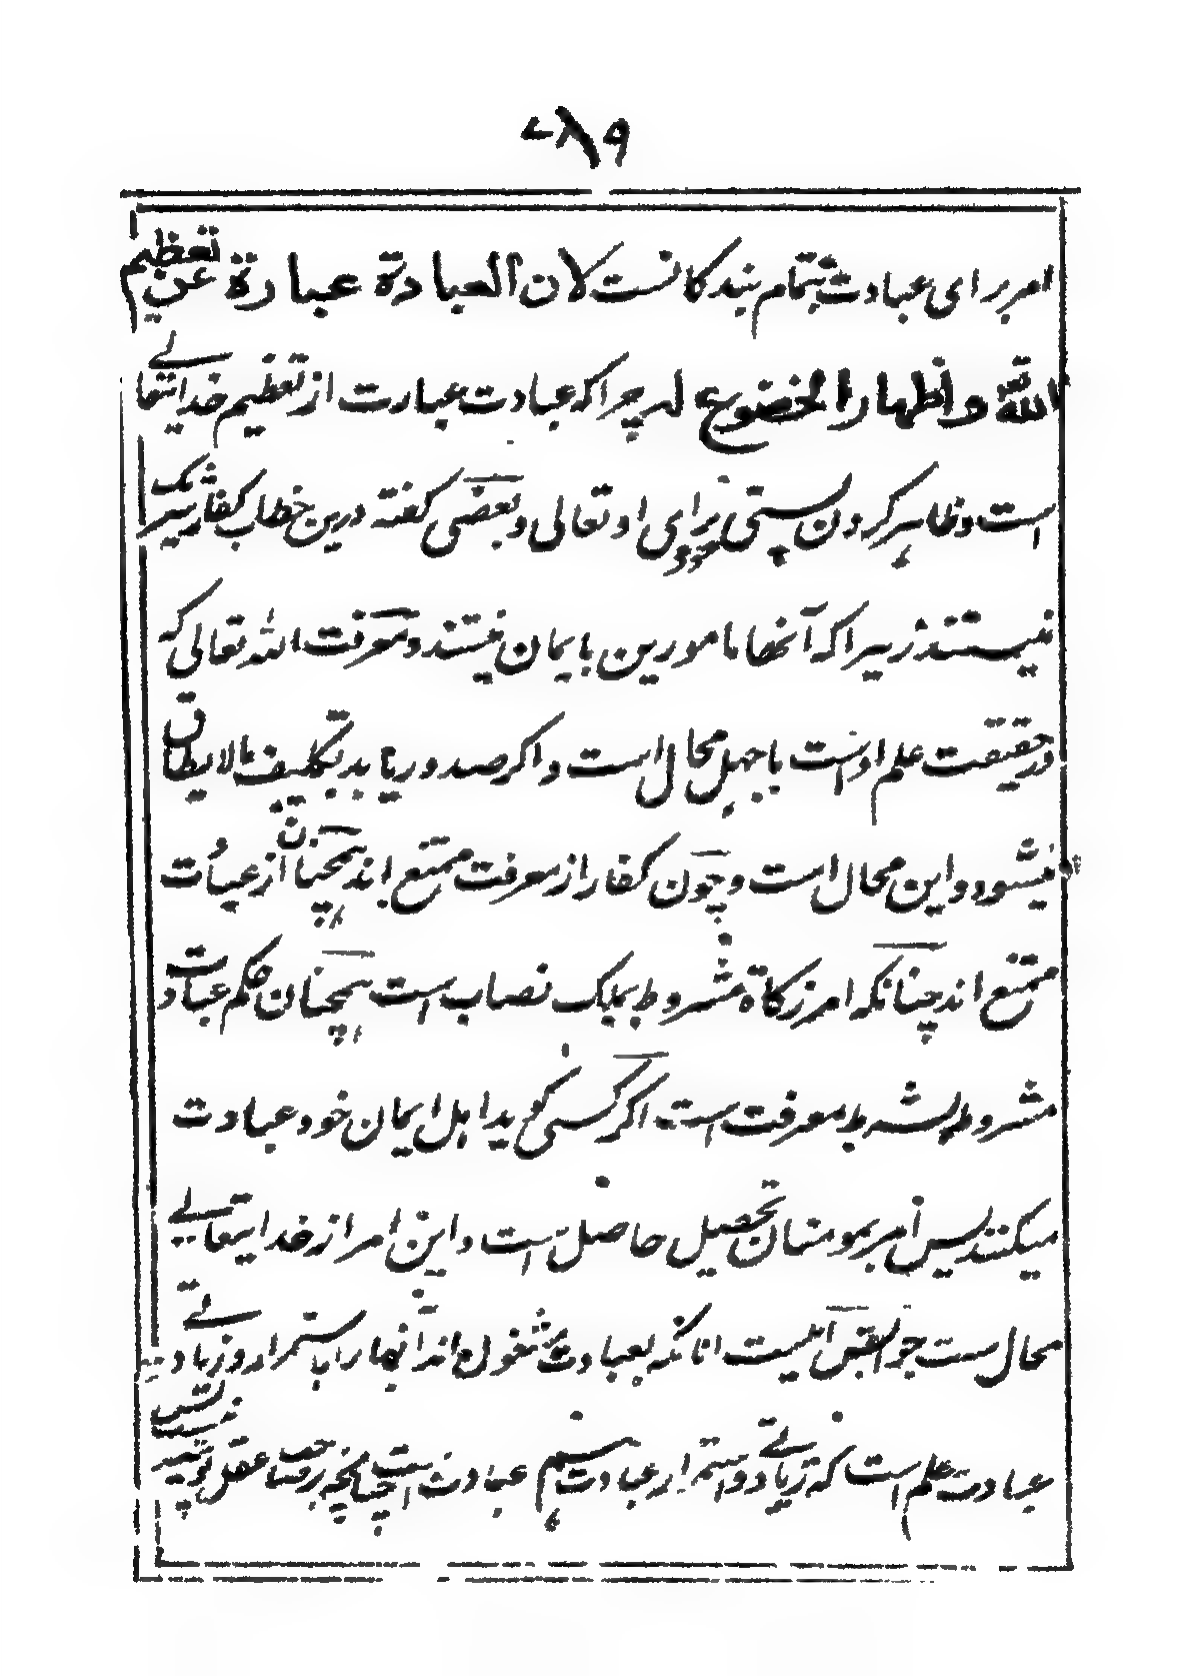 ۲۸۹
امر برای عبادت بتمام بندکانست لان العبادة عبارة عن تعظیم
الله و اظهار الخضوع له چرا که عبادت عبارت از تعظیم خدایتعالے
است و ظاهر کردن پستی برای او تعالی و بعضی کفته درین خطاب کفار شریک
نیستند زیرا که آنها مامورین بایمان نیستند و معرفت الله تعالی که
در حقیقت علم اوست با جهل محال است و اکر صدور یابد تکلیف مالایطاق
میشود و این محال است و چون کفار از معرفت ممتنع اند همچنان از عبادت
ممتنع اند چنانکه امر زکاة مشروط بملک نصاب است همچنان حکم عبادت
مشروط بشرط معرفت است اکر کسی کوید اهل ایمان خود عبادت
میکنند پس امر بمومنان تحصیل حاصل است و این امر از خدایتعالے
محال ست جوابش اینست انانکه بعبادت مشغول اند آنها را باستمرار و زیادتے
عبادت علم است که زیادتے و استمرار عبادت هم عبادت است چنانچه عقل